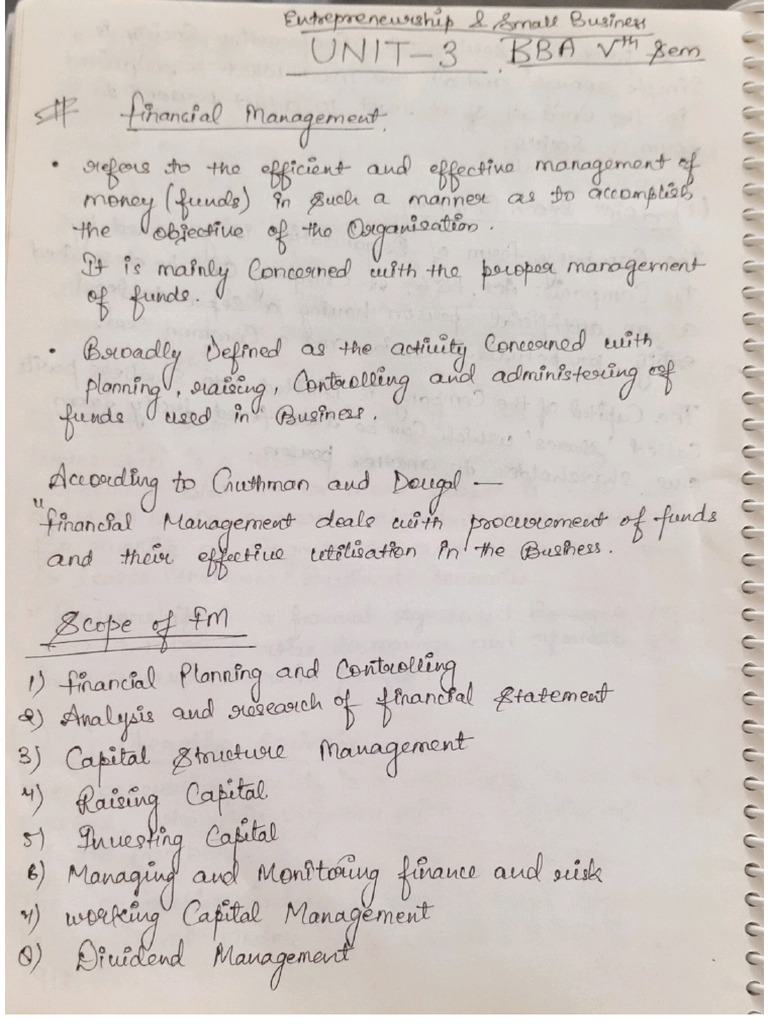 Entrepreneurship & Small Business
UNIT-3 BBA Vth Sem
# Financial Management.
• refers to the efficient and effective management of
money (funds) in such a manner as to accomplish
the objective of the Organisation.
It is mainly Concerned with the proper management
of funds.
• Broadly Defined as the activity Concerned with
planning, raising, Controlling and administering of
funds used in Business.
According to Guthman and Dougal —
"financial Management deals with procurement of funds
and their effective utilisation in the Business.
Scope of FM
1) financial Planning and Controlling
2) Analysis and research of financial Statement
3) Capital Structure Management
4) Raising Capital
5) Investing Capital
6) Managing and Monitoring finance and risk
7) working Capital Management
8) Dividend Management